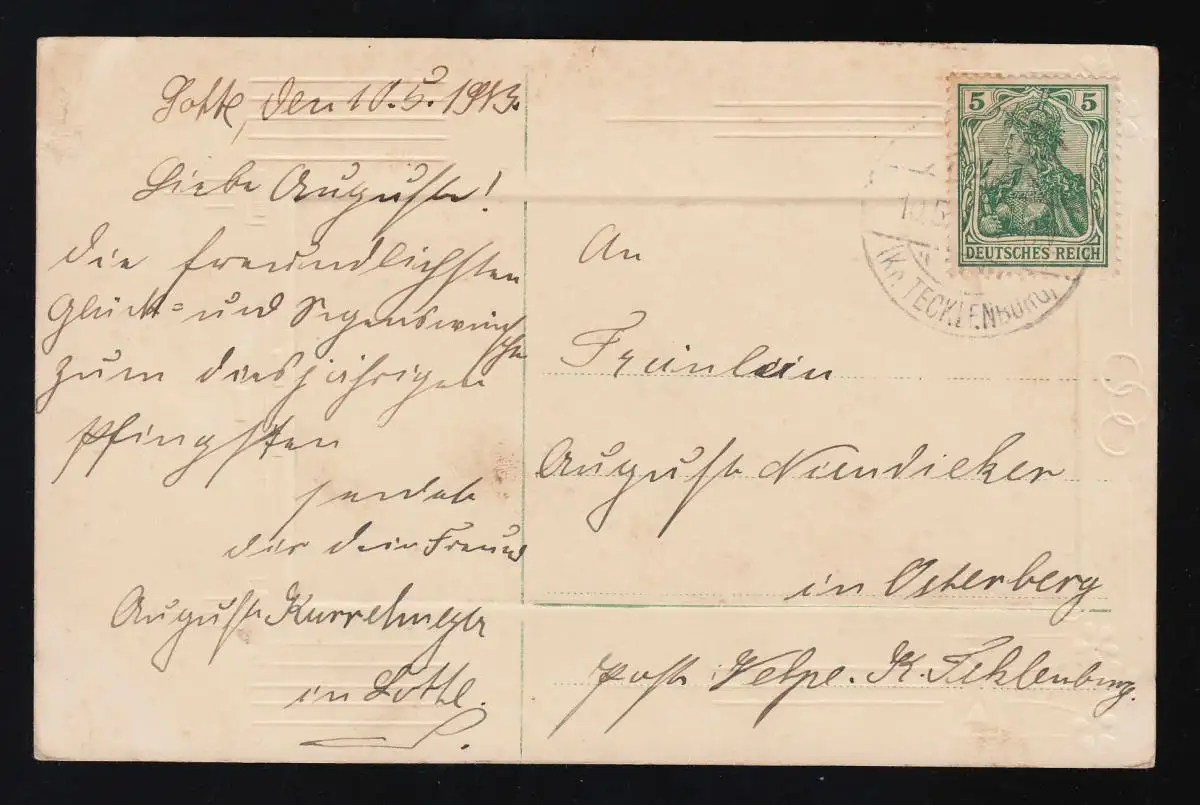 Lotte, den 10.5.1913.
Liebe Auguste!
die freundlichsten
Glück= und Segenswünsche
zum diesjährigen
Pfingsten
sendet
dir dein Freund
August Kurrelmeyer
in Lotte.
5 5
DEUTSCHES REICH
10.5
(Kr. TECKLENBURG)
An
Fräulein
Auguste
in Osterberg
Post Velpe. K. Teklenburg.